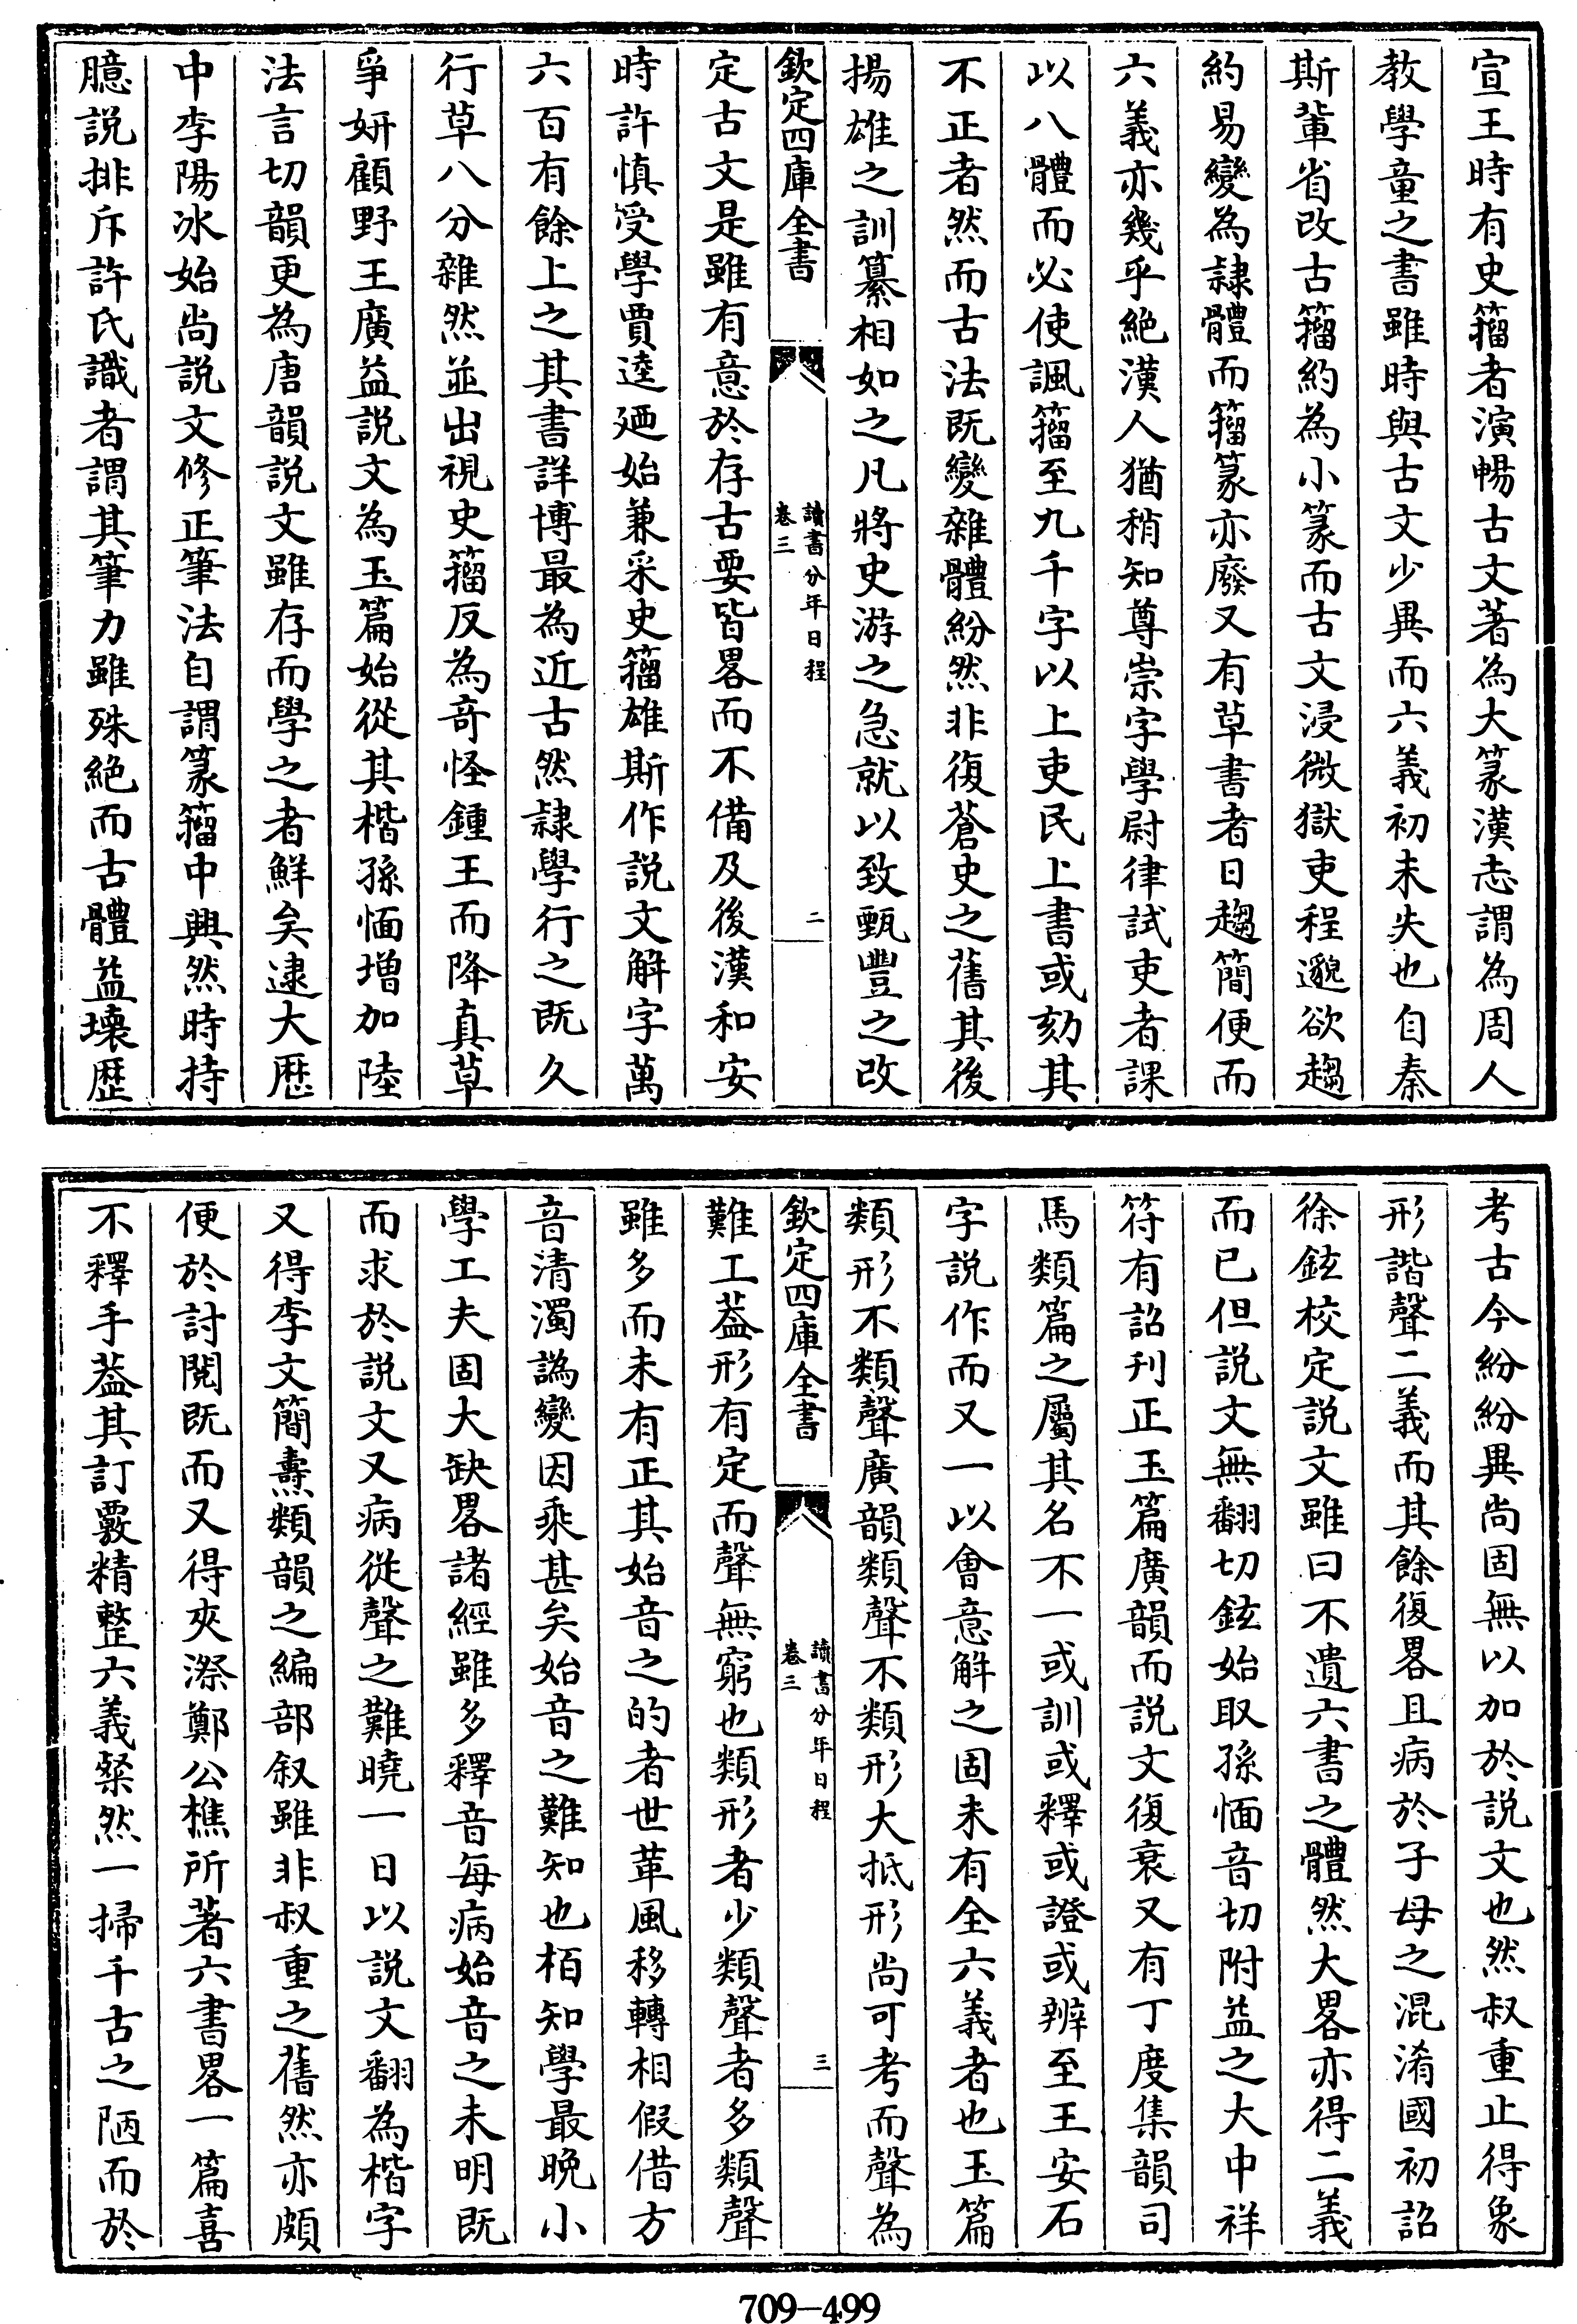 宣王時有史籀者演暢古文著為大篆漢志謂為周人
教學童之書雖時與古文少異而六義初未失也自秦
斯軰省改古籀約為小篆而古文浸微獄吏程邈欲趨
約易變為隷體而籀篆亦廢又有草書者日趨簡便而
六義亦幾乎絶漢人猶稍知尊崇字學尉律試吏者課
以八體而必使諷籀至九千字以上吏民上書或劾其
不正者然而古法既變雜體紛然非復蒼史之舊其後
揚雄之訓纂相如之凡將史游之急就以致甄豐之改
欽定四庫全書
讀書分年日程
卷三
二
定古文是雖有意於存古要皆畧而不備及後漢和安
時許慎受學賈逵廼始兼采史籀雄斯作説文解字萬
六百有餘上之其書詳博最為近古然隷學行之既久
行草八分雜然並出視史籀反為竒怪鍾王而降真草
爭妍顧野王廣益説文為玉篇始從其楷孫愐増加陸
法言切韻更為唐韻説文雖存而學之者鮮矣逮大厯
中李陽冰始尚説文修正筆法自謂篆籀中興然時持
臆説排斥許氏識者謂其筆力雖殊絶而古體益壊歴
考古今紛紛異尚固無以加於説文也然叔重止得象
形諧聲二義而其餘復畧且病於子母之混淆國初詔
徐鉉校定説文雖曰不遺六書之體然大畧亦得二義
而已但説文無翻切鉉始取孫愐音切附益之大中祥
符有詔刋正玉篇廣韻而説文復衰又有丁度集韻司
馬類篇之屬其名不一或訓或釋或證或辨至王安石
字説作而又一以會意解之固未有全六義者也玉篇
類形不類聲廣韻類聲不類形大抵形尚可考而聲為
欽定四庫全書
讀書分年日程
卷三
三
難工葢形有定而聲無窮也類形者少類聲者多類聲
雖多而未有正其始音之的者世革風移轉相假借方
音清濁譌變因乘甚矣始音之難知也栢知學最晩小
學工夫固大缺畧諸經雖多釋音每病始音之未明既
而求於説文又病從聲之難曉一日以説文翻為楷字
又得李文簡燾類韻之編部叙雖非叔重之舊然亦頗
便於討閲既而又得夾漈鄭公樵所著六書畧一篇喜
不釋手葢其訂覈精整六義粲然一掃千古之陋而於
709-499